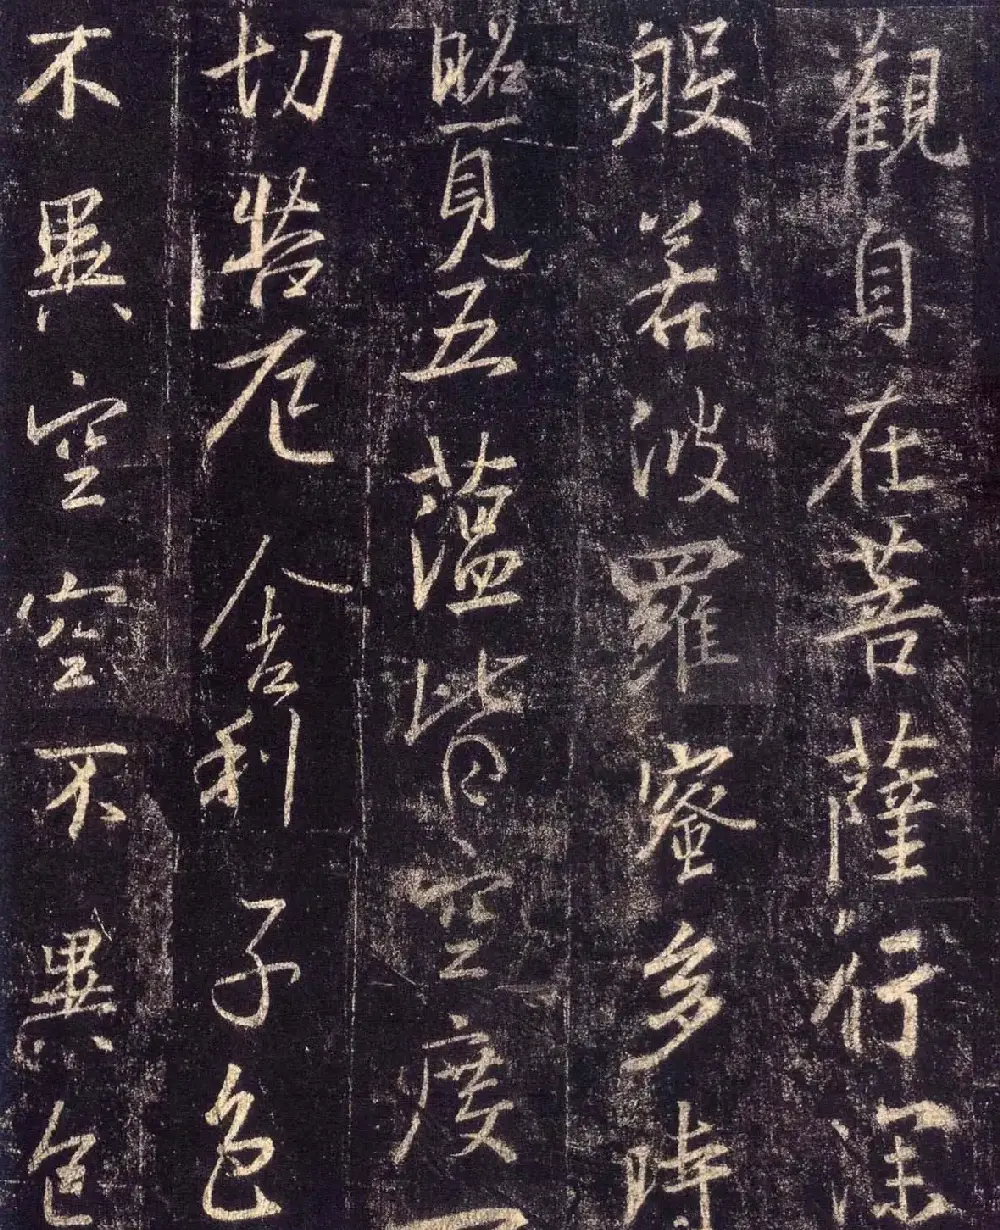 觀自在菩薩行深
般若波羅蜜多時
照見五蘊皆空度一
切苦厄舍利子色
不異空空不異色